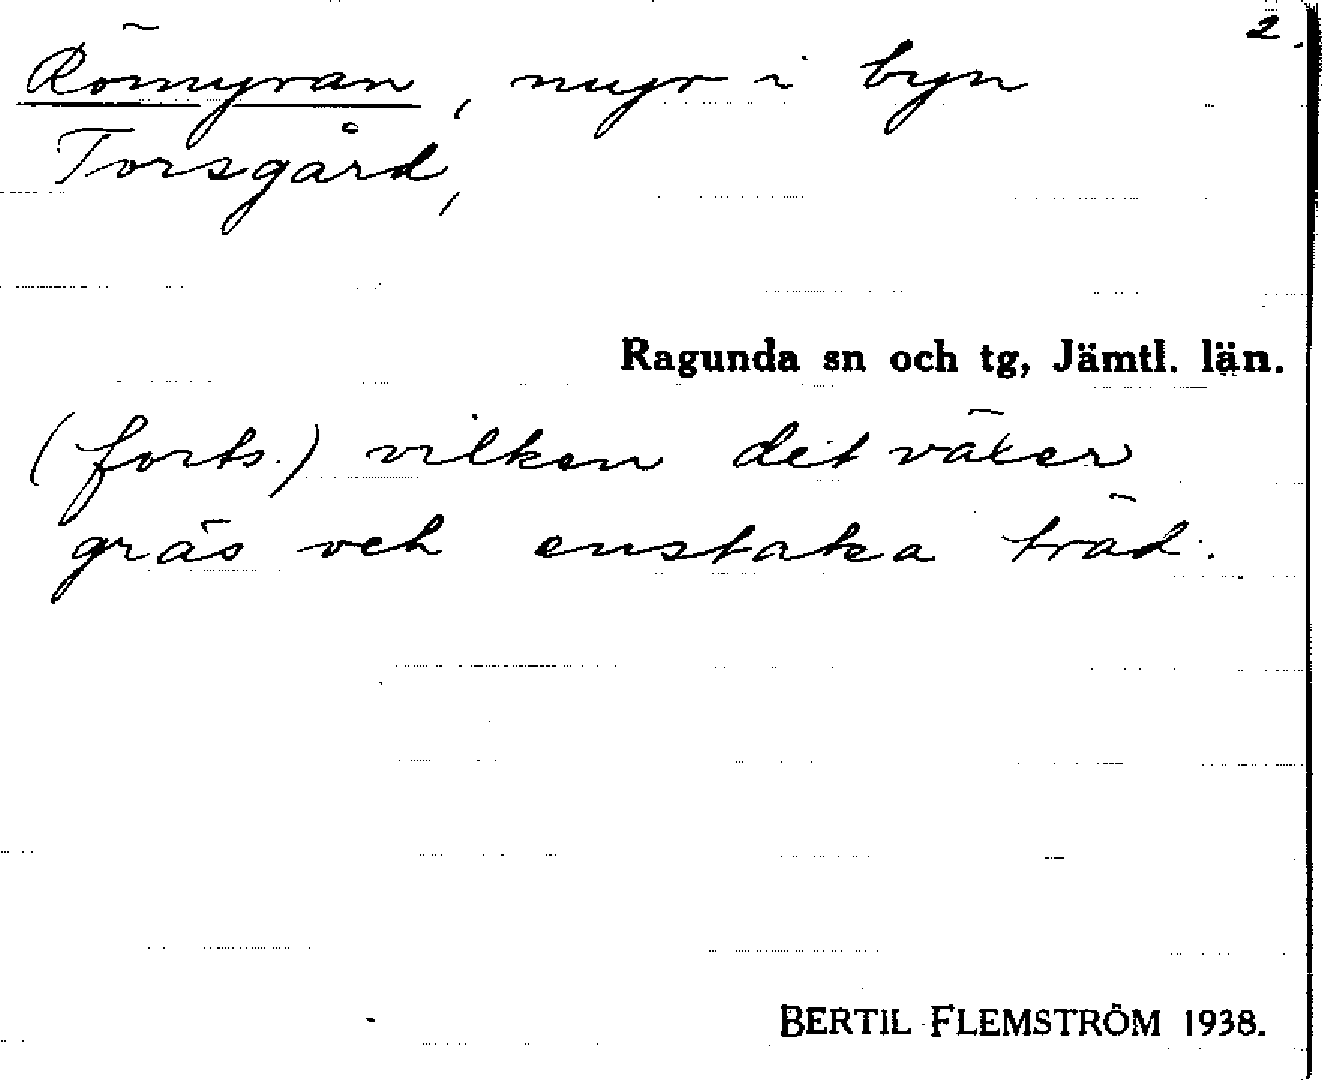 2.
Römyran, myr i byn
Torsgård,
Ragunda sn och tg, Jämtl. län.
(forts.) vilken det växer
gräs och enstaka träd.
BERTIL FLEMSTRÖM 1938.